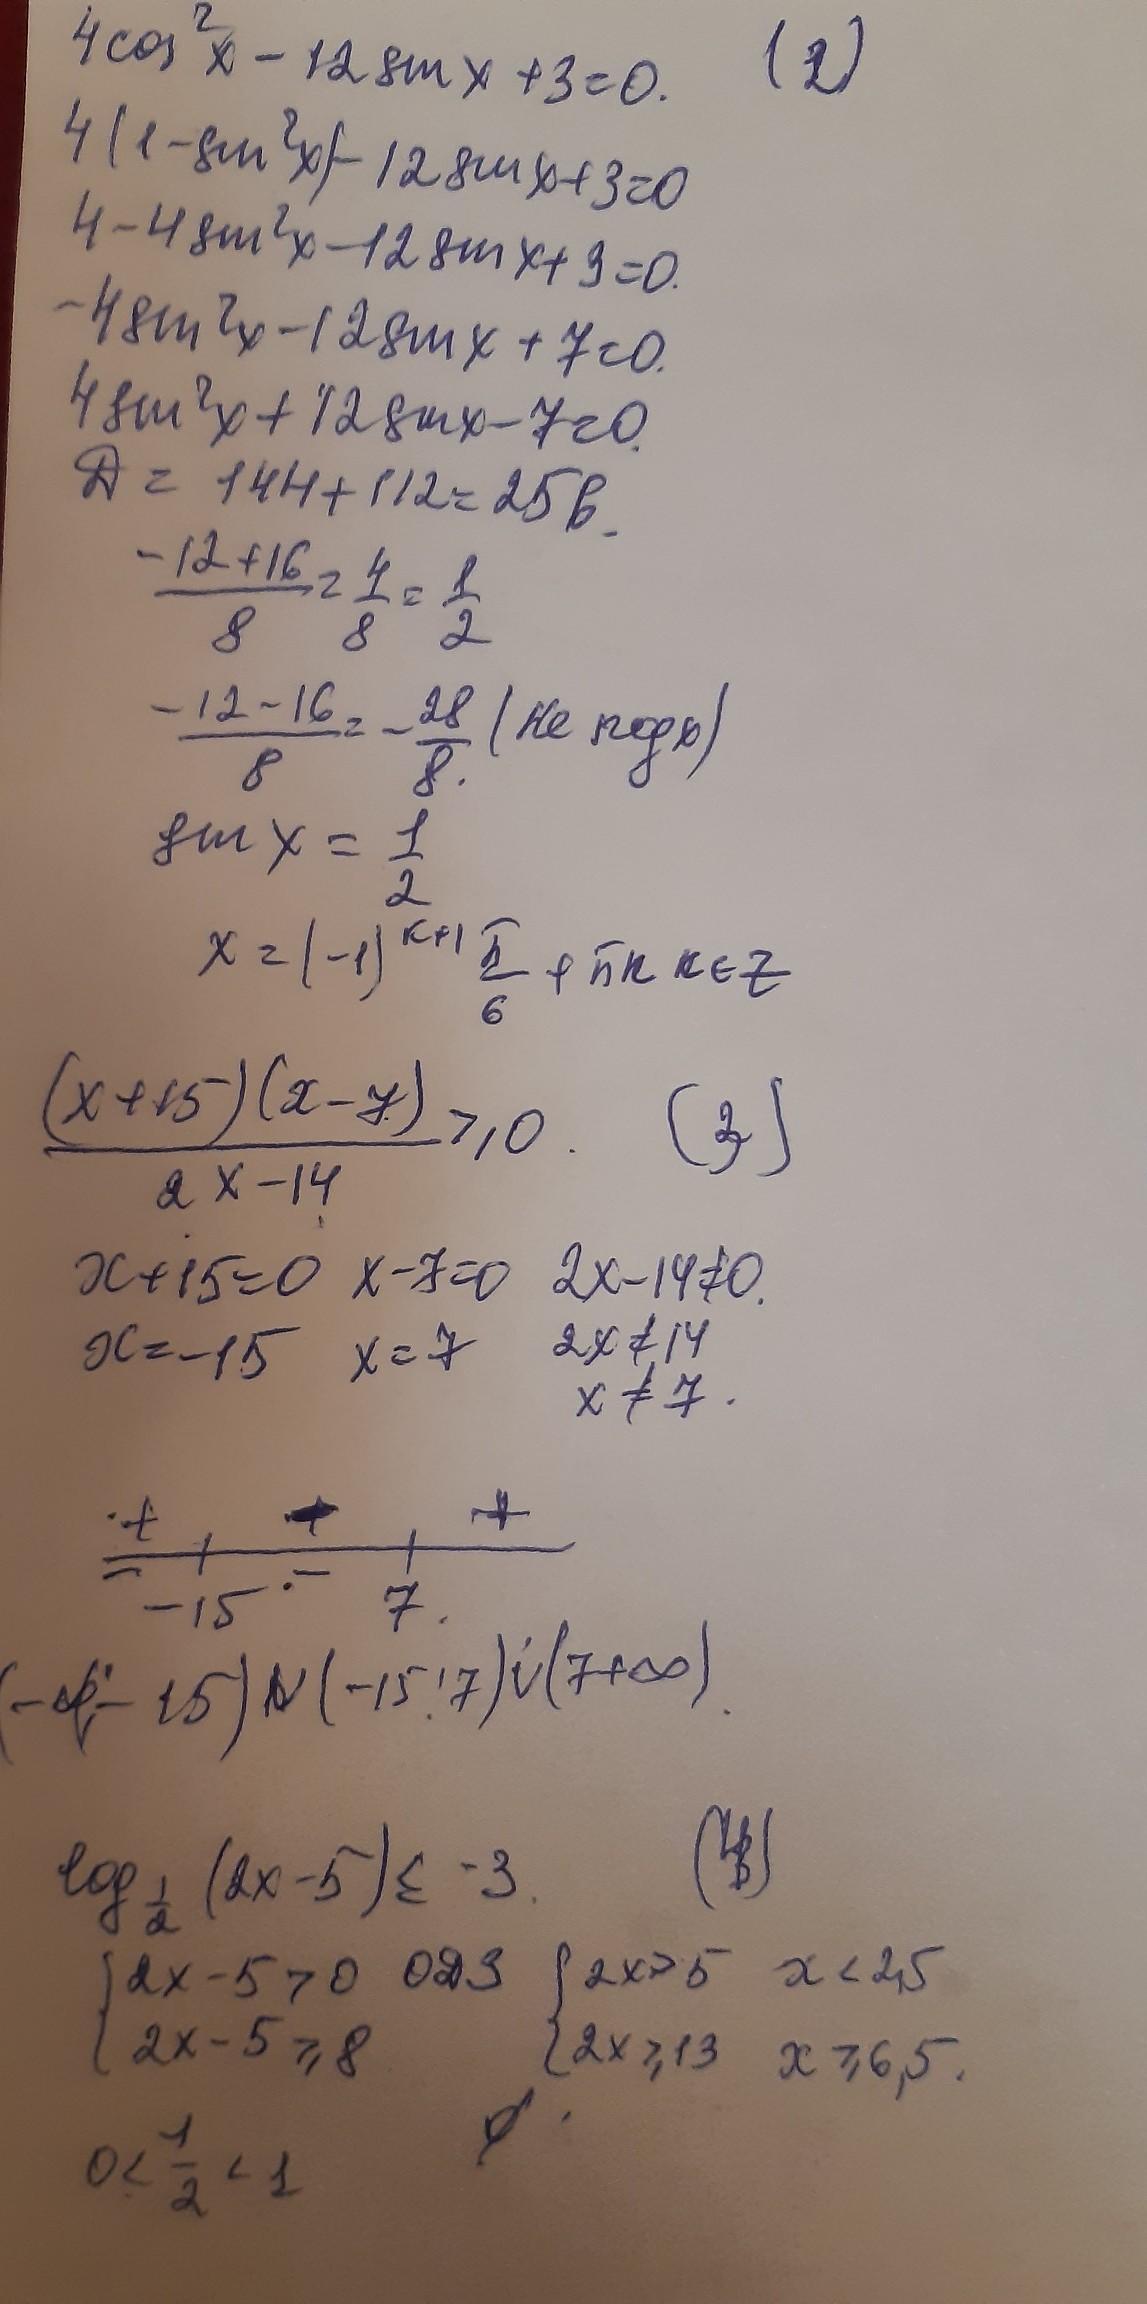 4cos²x - 12sinx + 3 = 0. (2)
4(1 - sin²x) - 12sinx + 3 = 0
4 - 4sin²x - 12sinx + 3 = 0.
-4sin²x - 12sinx + 7 = 0.
4sin²x + 12sinx - 7 = 0.
D = 144 + 112 = 256.
(-12+16)/8 = 4/8 = 1/2
(-12-16)/8 = -28/8. (не подх)
sin x = 1/2
x = (-1)^(k+1) π/6 + πk k∈Z
(x+15)(x-7)/(2x-14) ≥ 0. (3)
x+15=0 x-7=0 2x-14≠0.
x=-15 x=7 2x≠14
x≠7.
+ +
- -15 - 7.
(-15;7) (7+∞).
log_(1/2) (2x-5) ≤ -3. (4)
{2x-5>0 ОДЗ {2x>5 x<2,5
{2x-5≥8 {2x≥13 x≥6,5.
0<1/2<1 ∅.